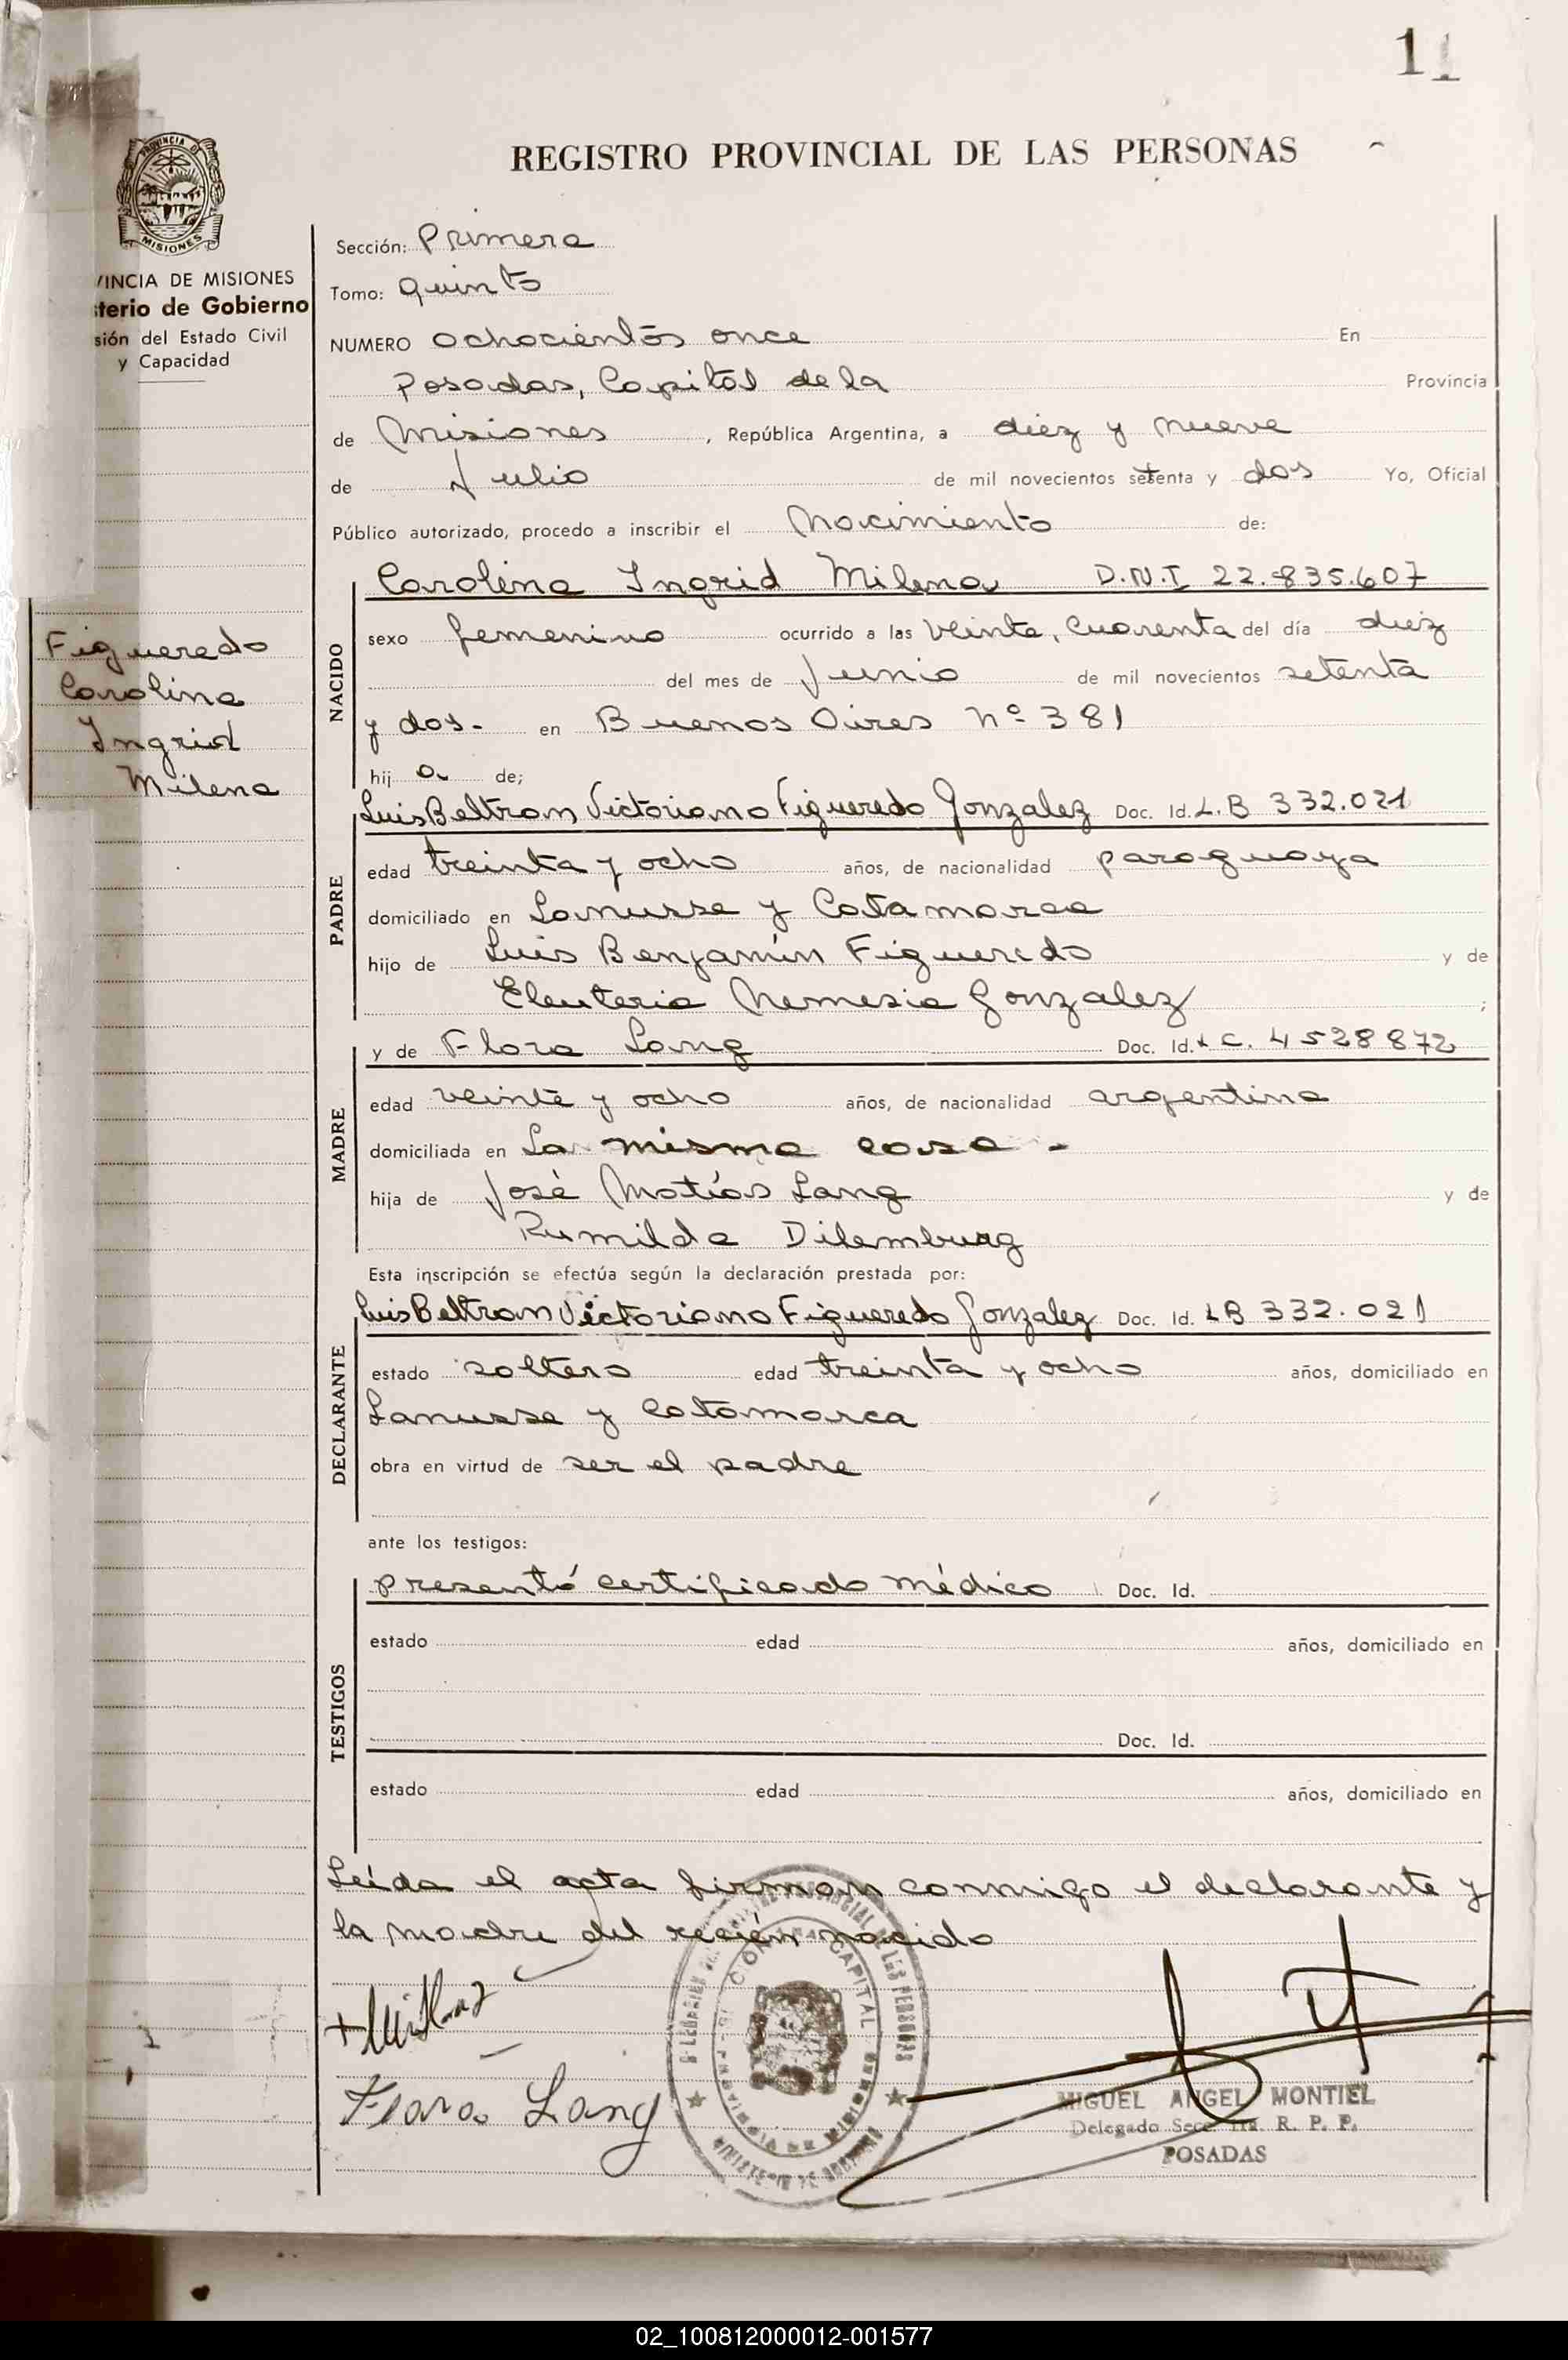 11
REGISTRO PROVINCIAL DE LAS PERSONAS
PROVINCIA DE
MISIONES
VINCIA DE MISIONES
sterio de Gobierno
sión del Estado Civil
y Capacidad
Sección: Primera
Tomo: quinto
NUMERO ochocientos once En
Posadas, Capital de la Provincia
de Misiones, República Argentina, a diez y nueve
de Julio de mil novecientos setenta y dos Yo, Oficial
Público autorizado, procedo a inscribir el Nacimiento de:
Figueredo
Carolina
Ingrid
Milena
NACIDO
Carolina Ingrid Milena D.N.I 22.835.607
sexo femenino ocurrido a las veinte, cuarenta del día diez
del mes de Junio de mil novecientos setenta
y dos.- en Buenos Aires Nº 381
hij a de;
PADRE
Luis Beltran Victoriano Figueredo Gonzalez Doc. Id. L.B 332.021
edad treinta y ocho años, de nacionalidad paraguaya
domiciliado en Lanusse y Catamarca
hijo de Luis Benjamín Figueredo y de
Eleuteria Nemesia Gonzalez ;
MADRE
y de Flora Lang Doc. Id. L C. 4528872
edad veinte y ocho años, de nacionalidad argentina
domiciliada en La misma casa -
hija de José Matías Lang y de
Rumilda Dilemburg
Esta inscripción se efectúa según la declaración prestada por:
DECLARANTE
Luis Beltran Victoriano Figueredo Gonzalez Doc. Id. LB 332.021
estado soltero edad treinta y ocho años, domiciliado en
Lanusse y Catamarca
obra en virtud de ser el padre
ante los testigos:
TESTIGOS
presentó certificado médico Doc. Id.
estado edad años, domiciliado en
Doc. Id.
estado edad años, domiciliado en
Leída el acta firman conmigo el declarante y
la madre del recién nacido
Flora Lang
CAPITAL
MIGUEL ANGEL MONTIEL
Delegado Secc. 1ra. R. P. P.
POSADAS
02_100812000012-001577